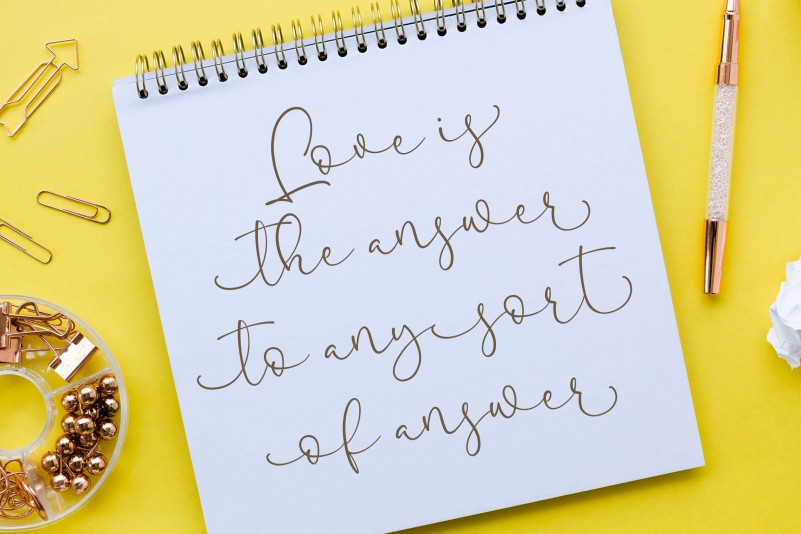 Love is
the answer
to any sort
of answer